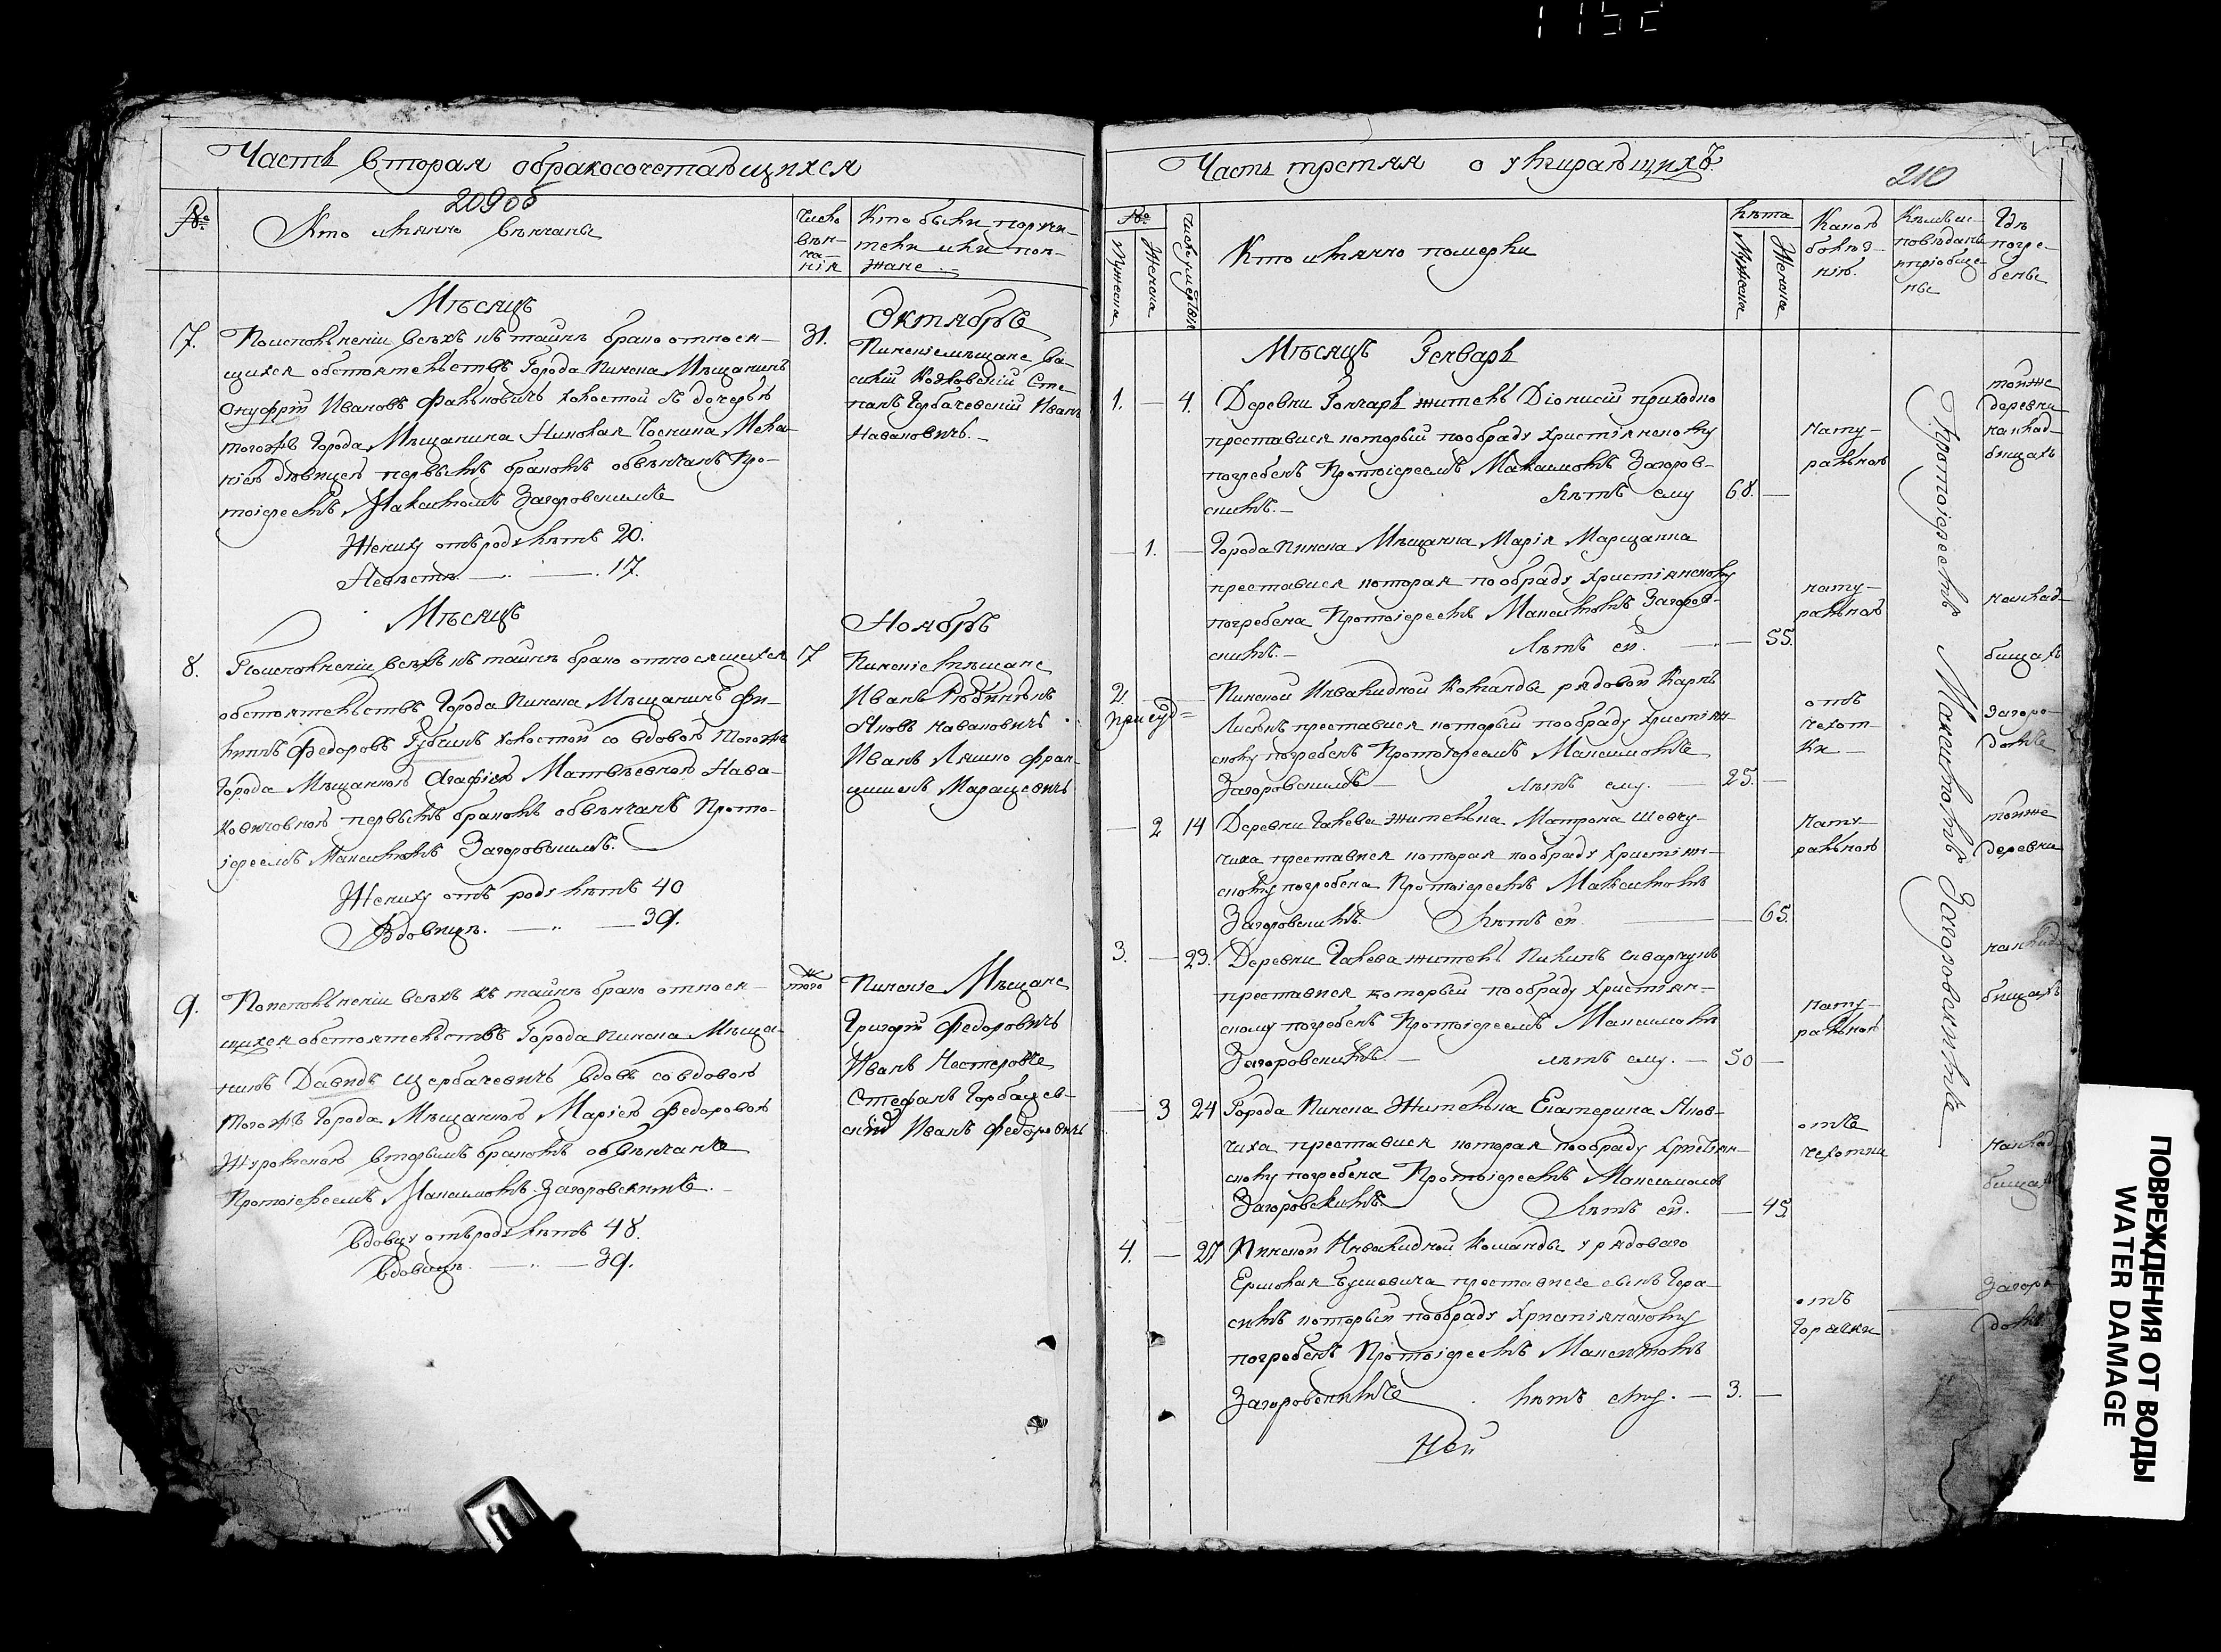 Часть вторая обракосочетавщихся
209об
№
Кто имянно венчаны
Число
вѣн-
ча-
нія
Кто были поручи-
тели или поѣ-
жане.
Мѣсяцъ
Октябрь
7.
Поисполненіи всѣхъ къ тайнѣ брака относя-
щихся обстоятельствъ Города Пинска Мѣщанинъ
Онуфрій Ивановъ Фальковичъ холостой съ дочерью
тогожъ Города Мѣщанина Николая
дѣвицею первымъ бракомъ обвѣнчанъ Про-
тоіереемъ Максимомъ Загоровскимъ
Жениху отъ роду лѣтъ 20.
Невѣстѣ — 17.
31.
Пинскіе мѣщане Ва-
силій Козловскій Сте-
панъ Горбачевскій Иванъ
Навановичъ.
Мѣсяцъ
Ноябрь
8.
Поисполненіи всѣхъ къ тайнѣ брака относящихся
обстоятельствъ Города Пинска Мѣщанинъ Фи-
липъ Федоровъ холостой со вдовою тогожъ
Города Мѣщанкою Агафіею Матвѣевною Нава-
новичовною первымъ бракомъ обвѣнчанъ Прото-
іереемъ Максимомъ Загоровскимъ.
Жениху отъ роду лѣтъ 40
Вдовицѣ. — 39.
17
Пинскіе мѣщане
Иванъ
Яковъ Навановичъ
Иванъ Ляшко Фран-
цишекъ Марацевичъ
9.
Поисполненіи всѣхъ къ тайнѣ брака относя-
щихся обстоятельствъ Города Пинска Мѣща-
нинъ Давидъ Щербачевичъ вдовъ со вдовою
тогожъ Города Мѣщанкою Маріею Федоровою
вторымъ бракомъ обвѣнчанъ
Протоіереемъ Максимомъ Загоровскимъ.
Вдовцу отъ роду лѣтъ 48.
Вдовицѣ. — 39.
тогожъ
Пинскіе Мѣщане
Григорій Федоровичъ
Иванъ Нестеровъ
Стефанъ Горбацев-
скій Иванъ Федоровичъ
Часть третяя о умиравщихъ.
210
№
Мужеска
Женска
Число умертвія
Кто имянно померли
лѣта
Мужеска
Женска
Какою
болѣз-
нію.
Кѣмъ ис-
повѣданы
и пріобще-
ны
Гдѣ
погре-
бены
Мѣсяцъ Генварь
1. — 4.
Деревни Гончаръ житель Діонисій приходко
преставися который пообряду Христіянскому
погребенъ Протоіереемъ Максимомъ Загоров-
скимъ.— лѣтъ ему 68. —
нату-
ральною
тойже
деревни
наклад-
бищахъ
— 1. —
Города Пинска Мѣщанка Марія Марцанка
преставися которая пообряду Христіянскому
погребена Протоіереемъ Максимомъ Загоров-
скимъ.— Лѣтъ ей. — 55.
нату-
ральною
наклад-
бищахъ
2. —
Пинской Инвалидной Команды рядовой Карпъ
преставися который пообряду Христіян-
скому погребенъ Протоіереемъ Максимомъ
Загоровскимъ — лѣтъ ему. — 25. —
отъ
чехот-
ки —
Загоро-
домъ
— 2 14
Деревни Галева жителька Матрона Шевчу-
чиха преставися которая пообряду Христіян-
скому погребена Протоіереемъ Максимомъ
Загоровскимъ. Лѣтъ ей — 65.
нату-
ральною
тойже
деревни
3. — 23.
Деревни Галева житель
преставися который пообряду Христіян-
скому погребенъ Протоіереемъ Максимомъ
Загоровскимъ. — лѣтъ ему. — 50 —
нату-
ральною
наклад-
бищахъ
— 3 24
Города Пинска Жителька Екатерина Янов-
чиха преставися которая пообряду Христіян-
скому погребена Протоіереемъ Максимомъ
Загоровскимъ. Лѣтъ ей. — 45.
отъ
чехотки
наклад-
бищахъ
4. — 27
Пинской Инвалидной Команды у рядоваго
Ермолая преставися сынъ Гера-
симъ который пообряду Христіянскому
погребенъ Протоіереемъ Максимомъ
Загоровскимъ лѣтъ ему. — 3. —
отъ
Горячки
Загоро-
домъ
Протоіереемъ Максимомъ Загоровскимъ
ПОВРЕЖДЕНИЯ ОТ ВОДЫ
WATER DAMAGE